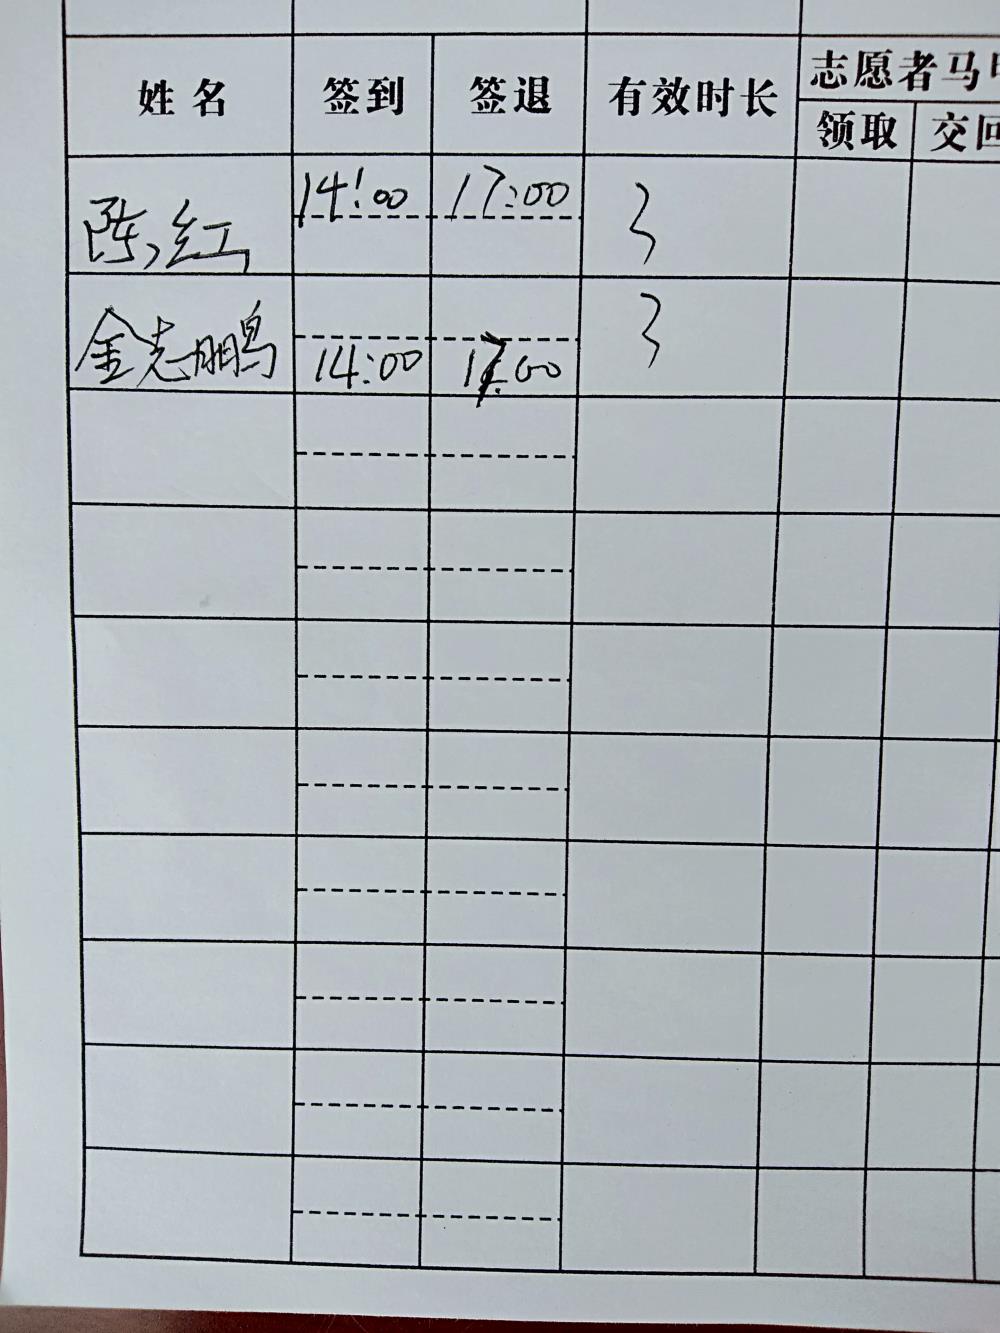 姓名 签到 签退 有效时长 志愿者马甲
领取 交回
陈红 14:00 17:00 3
金志鹏 14:00 17:00 3